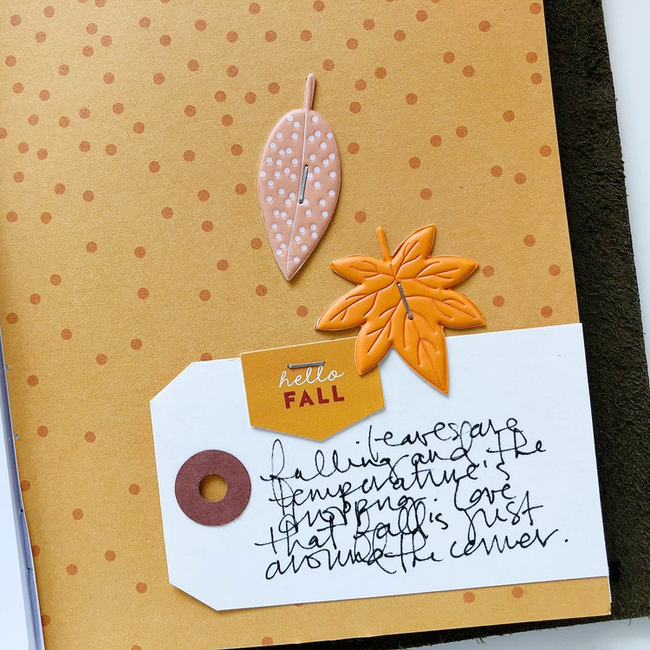 hello
FALL
Leaves are
falling and the
temperature is
dropping. Love
that Fall is just
around the corner.